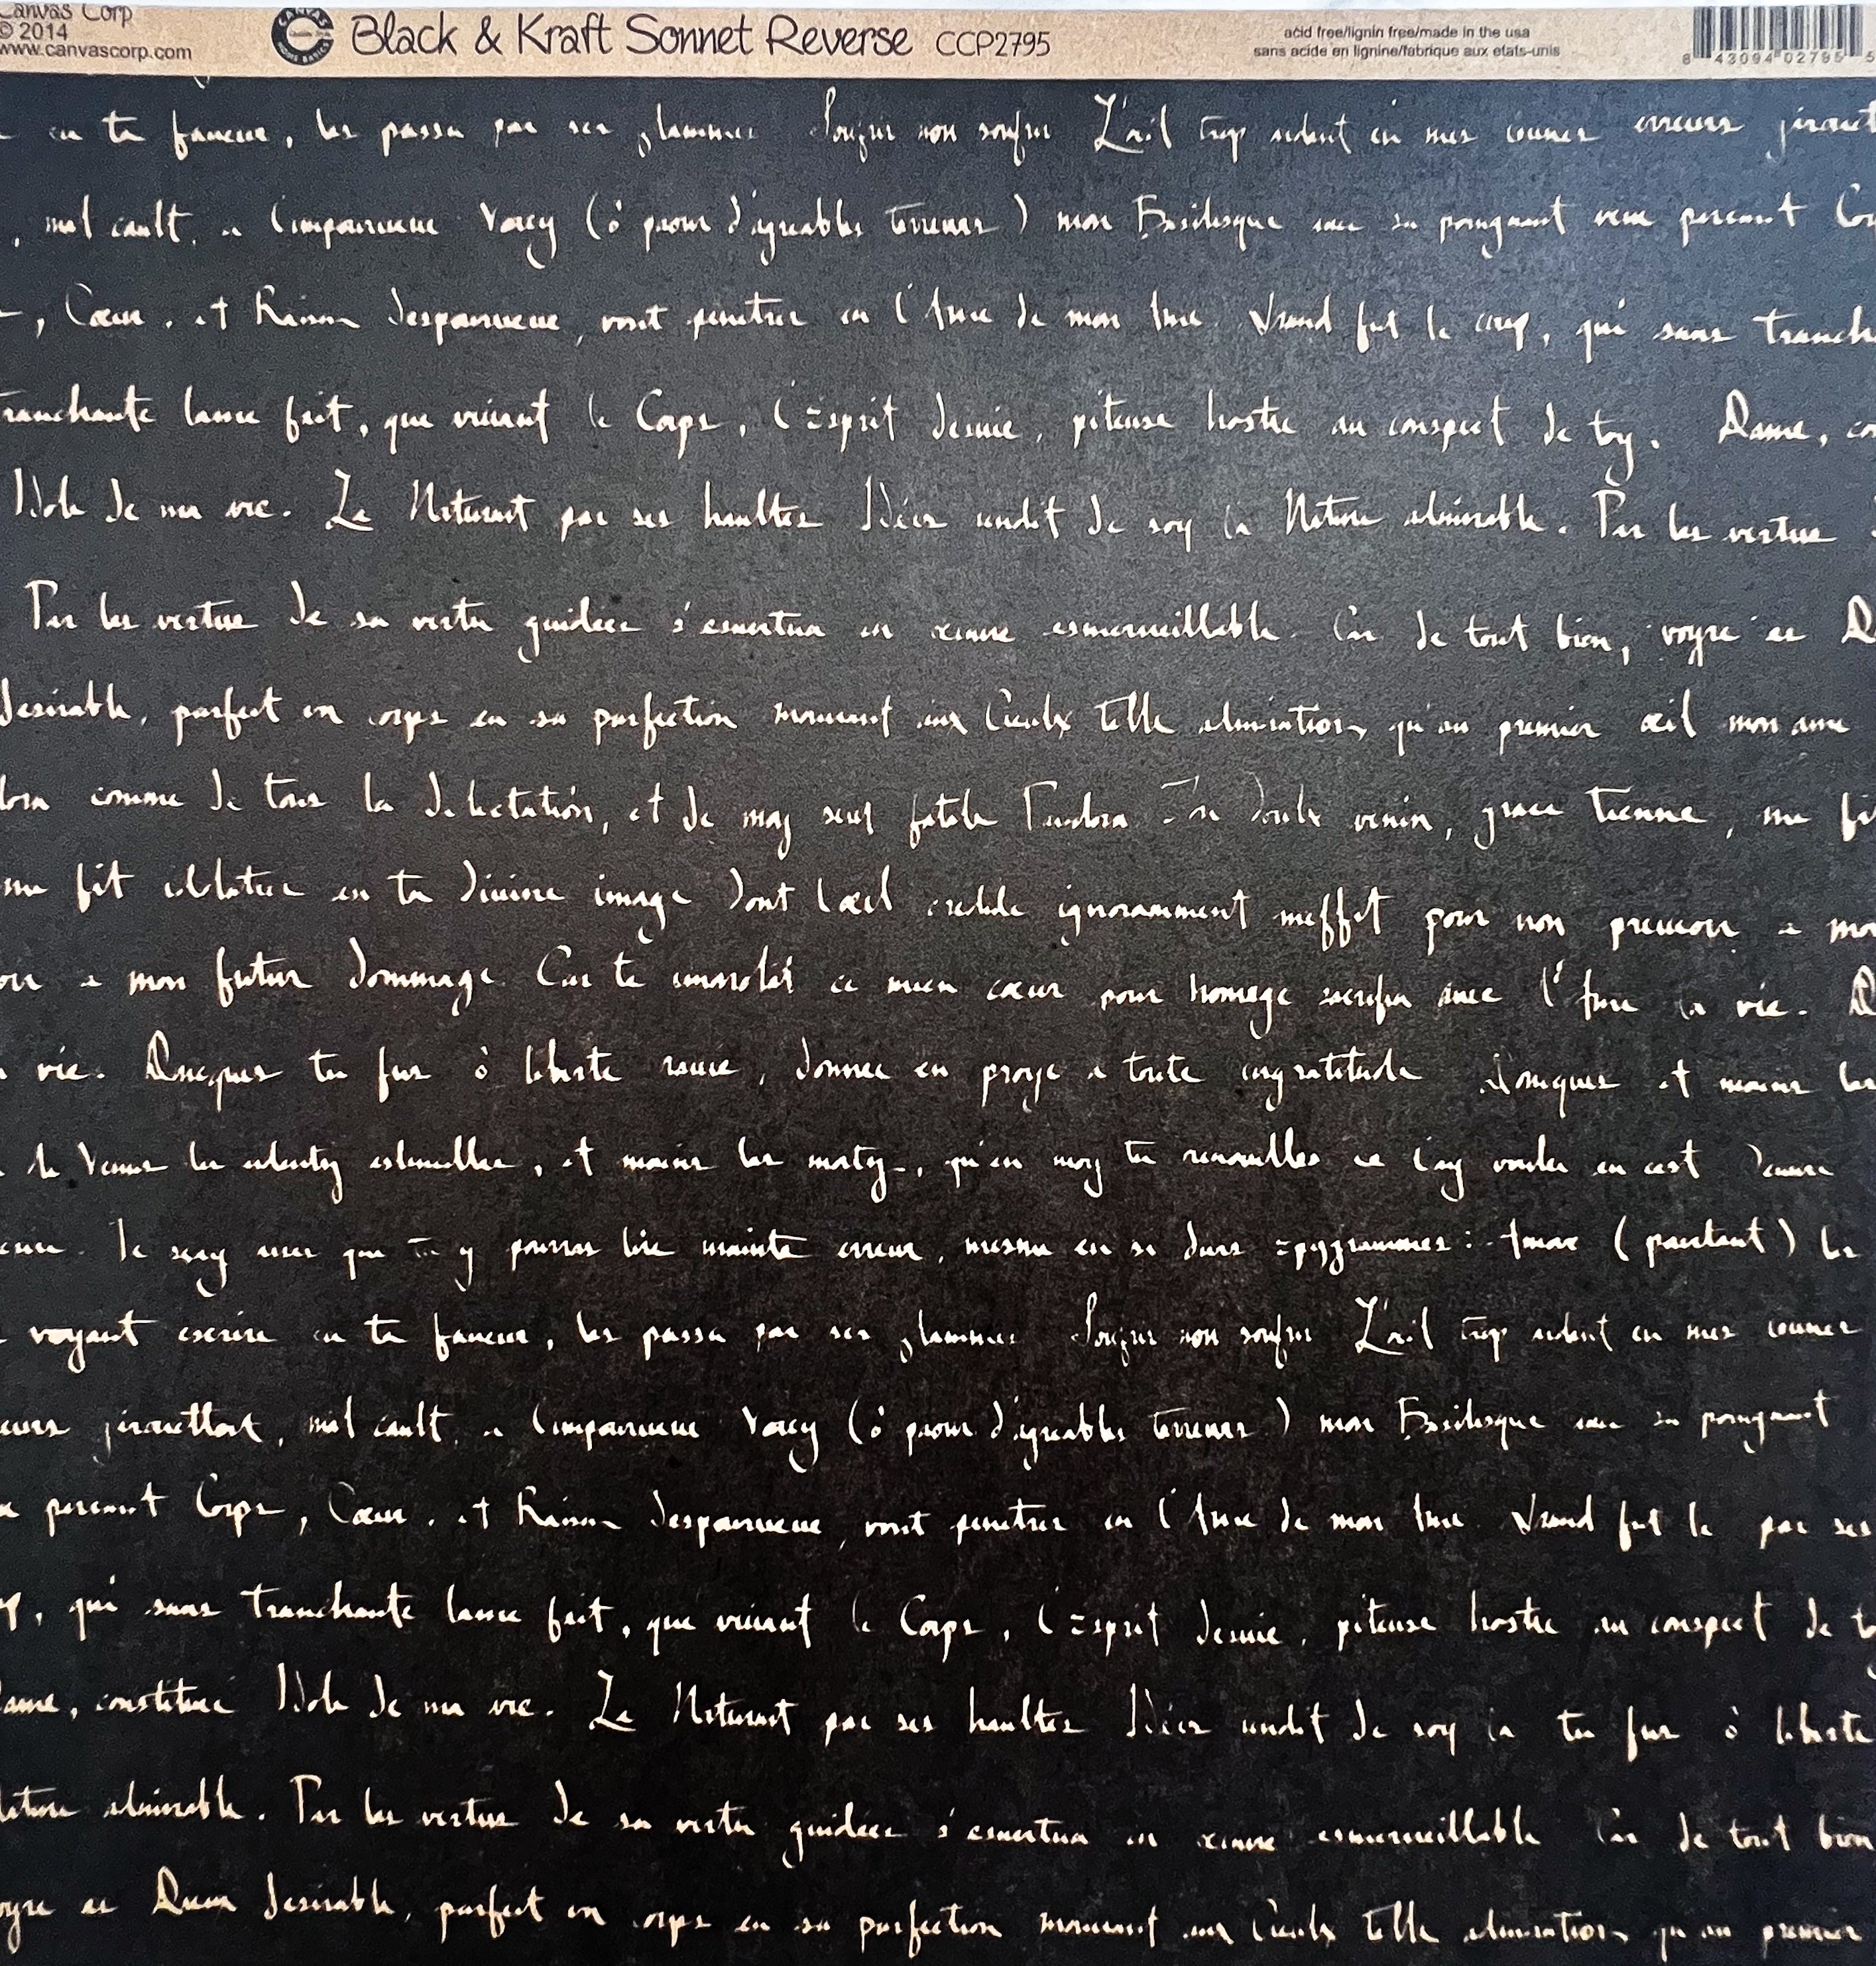 Canvas Corp
© 2014
www.canvascorp.com
CANVAS
HOME BASICS
Black & Kraft Sonnet Reverse CCP2795
acid free/lignin free/made in the usa
sans acide en lignine/fabrique aux etats-unis
8 43094 02795 5
en ta faueur, les passa par ses flammes Souffrir non souffrir L'œil trop ardent en mes ieunes erreurs girouet
, mal cault, a l'impourueue Voicy (ô paour d'agreables terreurs) mon Basilisque auec sa poingnant veue perceant Cor
, Cœur, et Raison despourueue, vint penetrer en l'Ame de mon Ame. Grand fut le coup, qui sans tranch
tranchante lame fait, que viuant le Corps, l'Esprit desuie, piteuse hostie au conspect de toy. Dame, co
Idole de ma vie. Le Naturant par ses haultes Idées rendit de soy la Nature admirable. Par les vertus
Par les vertus de sa vertu guidées s'esuertua en œuure esmerueillable. Car de tout bien, voyre es D
desirable, parfeit un corps en sa parfection mouuant aux Cieulx telle admiration, qu'au premier œil mon ame
dora comme de tous la delectation, et de moy seul fatale Pandora. Ton doulx venin, grace tienne, me fit
me fit idolatre en ta diuine image dont l'œil credule ignoramment meffit pour non preueoir a mon
oir a mon futur dommage. Car te immolant ce mien cœur pour homage sacrifia auec l'Ame la vie. D
vie. Doncques tu fus ô liberté rauie, donnée en proye a toute ingratitude. Doncques et moins les
de Venus les ardentz estincelles, et moins les mortz, qu'en moy tu renouelles ie t'ay voulu en cest Oeuure
Oeuure. Ie sçay assez que tu y pourras lire mainte erreur, mesme en si durs Epygrammes: Amour (pourtant) les
voyant escrire en ta faueur, les passa par ses flammes Souffrir non souffrir L'œil trop ardent en mes ieunes
erreurs girouettoit, mal cault, a l'impourueue Voicy (ô paour d'agreables terreurs) mon Basilisque auec sa poingnant
perceant Corps, Cœur, et Raison despourueue, vint penetrer en l'Ame de mon Ame. Grand fut le par ses
, qui sans tranchante lame fait, que viuant le Corps, l'Esprit desuie, piteuse hostie au conspect de t
Dame, constituée Idole de ma vie. Le Naturant par ses haultes Idées rendit de soy la tu fus ô liberté
Nature admirable. Par les vertus de sa vertu guidées s'esuertua en œuure esmerueillable. Car de tout bien
voyre es Dieux desirable, parfeit un corps en sa parfection mouuant aux Cieulx telle admiration, qu'au premier